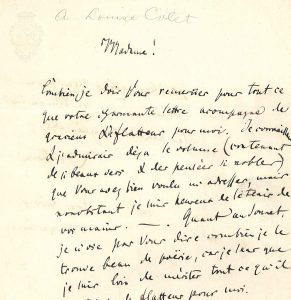 A Louise Colet
Madame!
Combien je dois Vous remercier pour tout ce
que votre charmante lettre acompagne de
gracieux & flatteur pour moi. Je connaissais
& j'admirais déja le volume (contenant
de si beaux vers & des pensées si nobles)
que Vous avez bien voulu m'adresser, mais
nonobstant je suis heureux de le tenir de
vos mains. — Quant au sonnet
je n'ose pas Vous dire combien je le
trouve beau de poésie, car je sens que
je suis loin de mériter tout ce qu'il
de flatteur pour moi.